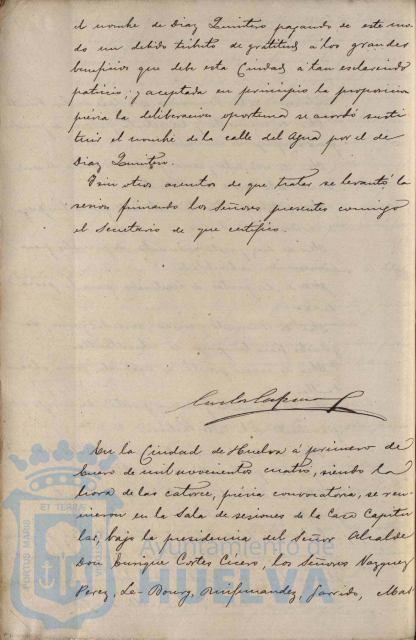 el nombre de Diaz Quintero pagando de este mo-
do un debido tributo de gratitud á los grandes
beneficios que debe esta Ciudad á tan esclarecido
patricio; y aceptada en principio la proposicion
prévia la deliberacion oportuna se acordó susti-
tuir el nombre de la calle del Agua por el de
Diaz Quintero.
Y sin otros asuntos de que tratar se levantó la
sesion firmando los Señores presentes conmigo
el Secretario de que certifico.
En la Ciudad de Huelva á primero de
Enero de mil novecientos cuatro, siendo la
hora de las catorce, prévia convocatoria, se reu-
nieron en la Sala de sesiones de la Casa Capitu-
lar, bajo la presidencia del Señor Alcalde
Don Enrique Cortés Cicero, los Señores Vazquez
Perez, Le-Bourg, Ruifernandez, Garrido, Mar-
PORTUS MARIS
ET TERRÆ
CUSTODIA
Ayuntamiento de
HUELVA